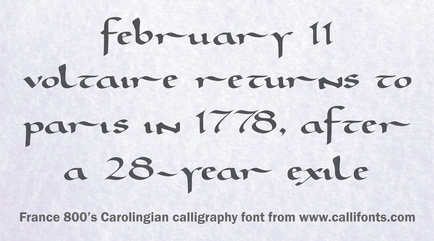 february 11
voltaire returns to
paris in 1778, after
a 28-year exile
France 800's Carolingian calligraphy font from www.callifonts.com